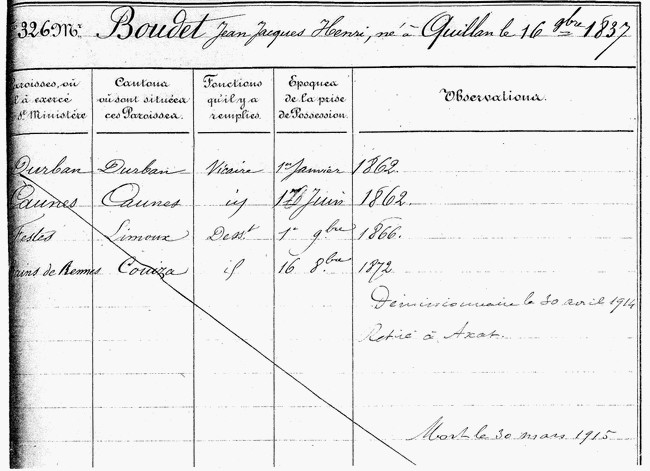 326 Mr. Boudet Jean Jacques Henri, né à Quillan le 16 9bre 1837
aroisses, où il à exercé St. Ministère | Cantons où sont situées ces Paroisses. | Fonctions qu'il y a remplies. | Epoques de la prise de Possession. | Observations.
Durban | Durban | Vicaire | 1er Janvier | 1862.
Caunes | Caunes | id | Juin | 1862.
Festes | Limoux | Desst | 1er 9bre | 1866.
ains de Rennes | Couiza | id | 16 8bre | 1872
Démissionnaire le 30 avril 1914
Retiré à Axat.
Mort le 30 mars 1915